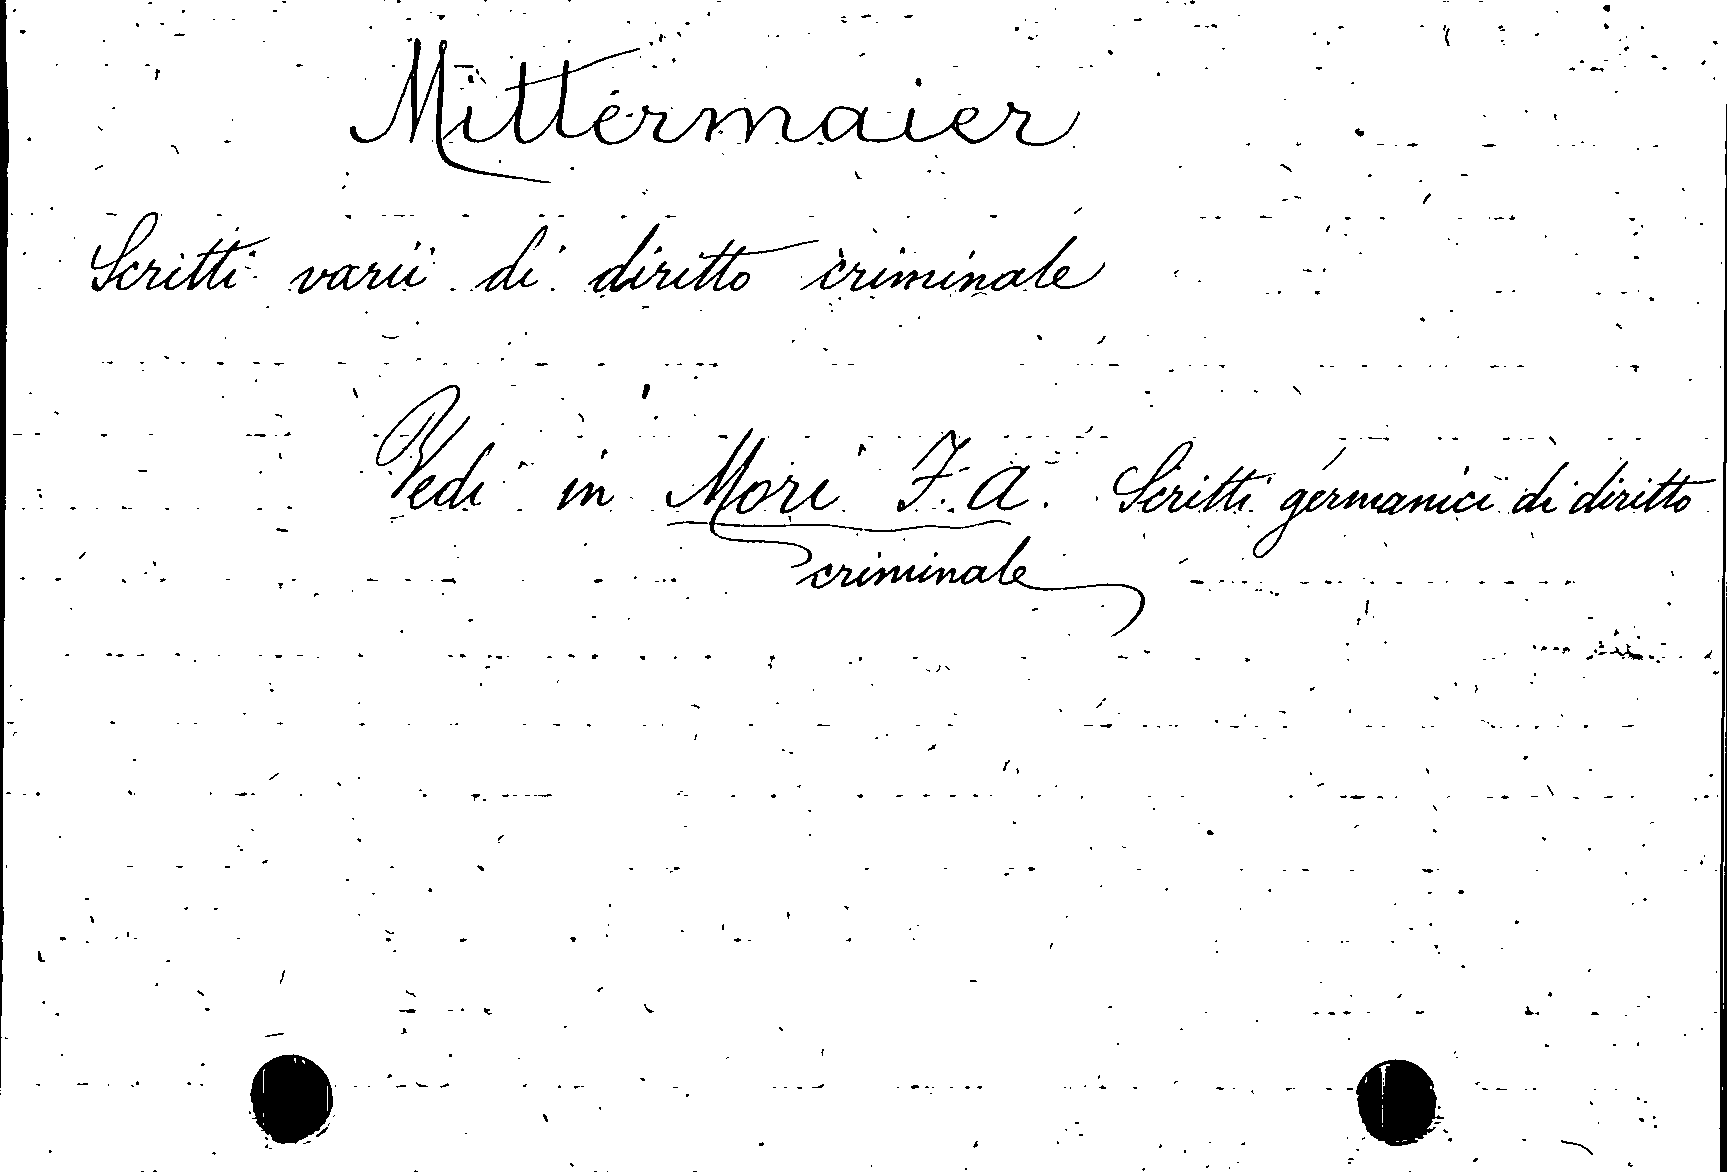 Mittermaier
Scritti varii di diritto criminale
Vedi in Mori F. A. Scritti germanici di diritto
criminale